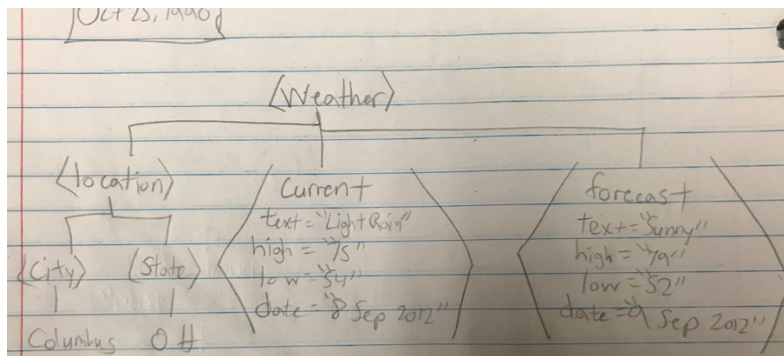 Oct 25, 1990
<Weather>
<location>
<City> <State>
Columbus OH
<current
text="Light Rain"
high="75"
low="54"
date="8 Sep 2012">
<forecast
text="Sunny"
high="79"
low="52"
date="9 Sep 2012">